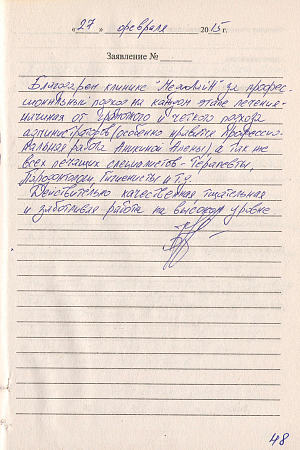 « 27 » февраля 2015 г.
Заявление № ______
Благодарен клинике за профес-
сиональный подход на каждом этапе лечения-
начиная от грамотного и четкого подхода
администраторов (особенно нравится профессио-
нальная работа Аникиной Алены) а так же
всех лечащих специалистов - Терапевты,
Пародонтологи, Гигиенисты и т.д.
Действительно качественная тщательная
и заботливая работа на высоком уровне
48